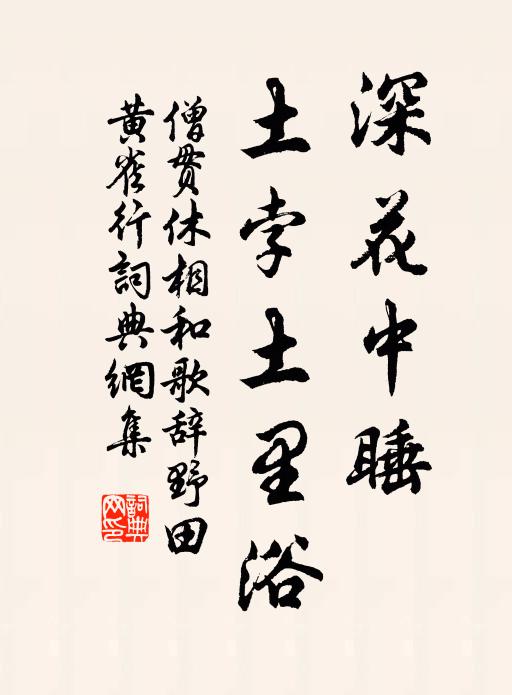 深花中睡
土孛土里浴
僧贯休相和歌辞野田
黄雀行詞典網集
詞典网印